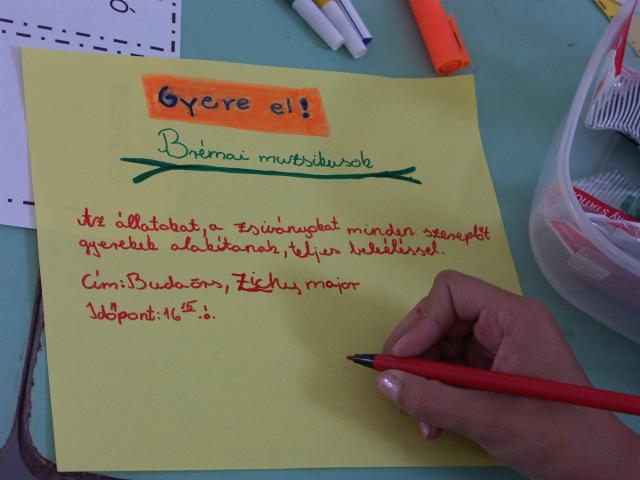 Gyere el!
Brémai muzsikusok
Az állatokat, a zsiványokat minden szereplőt
gyerekek alakítanak, teljes beleéléssel.
Cím: Budaörs, Zichy major
Időpont: 16 15 .ó.